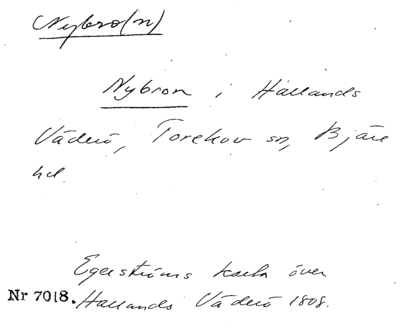 Nybro(n)
Nybron i Hallands
Väderö, Torekov sn, Bjäre
hd.
Egerströms karta över
Nr 7018. Hallands Väderö 1808.